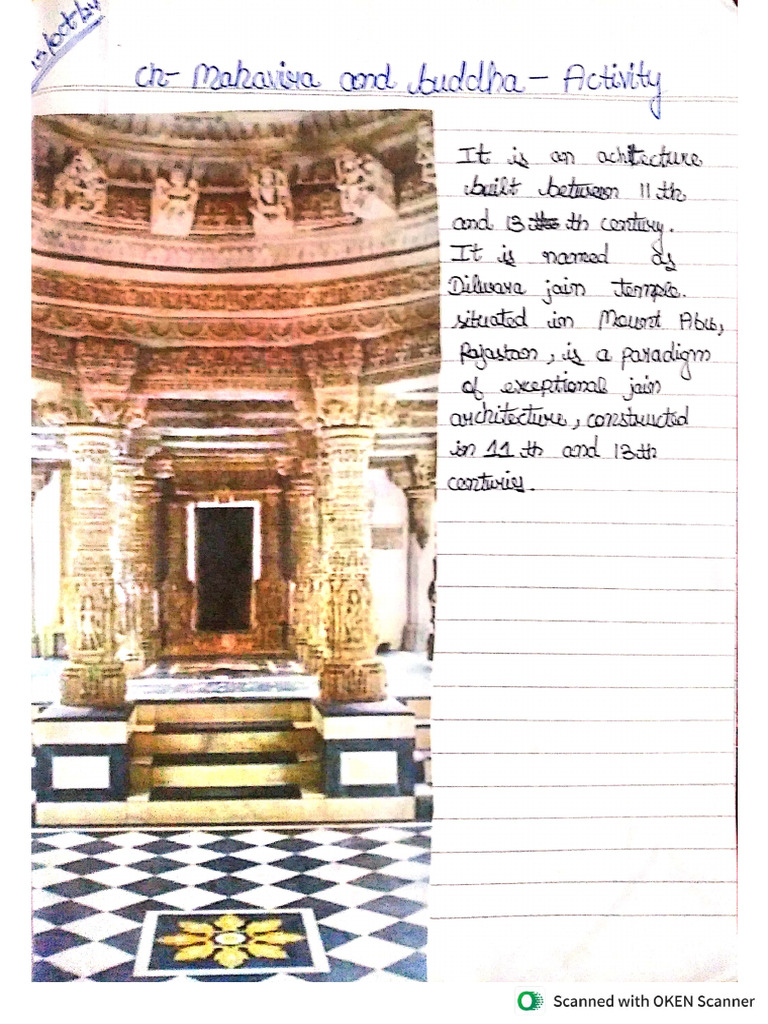 15/Oct/24
Ch- Mahavira and buddha - Activity
It is an achitecture
built between 11 th
and 13 th century.
It is named as
Dilwara jain temple.
situated in Mount Abu,
Rajastan, is a paradigm
of exceptional jain
architecture, constructed
in 11 th and 13th
centuries.
Scanned with OKEN Scanner